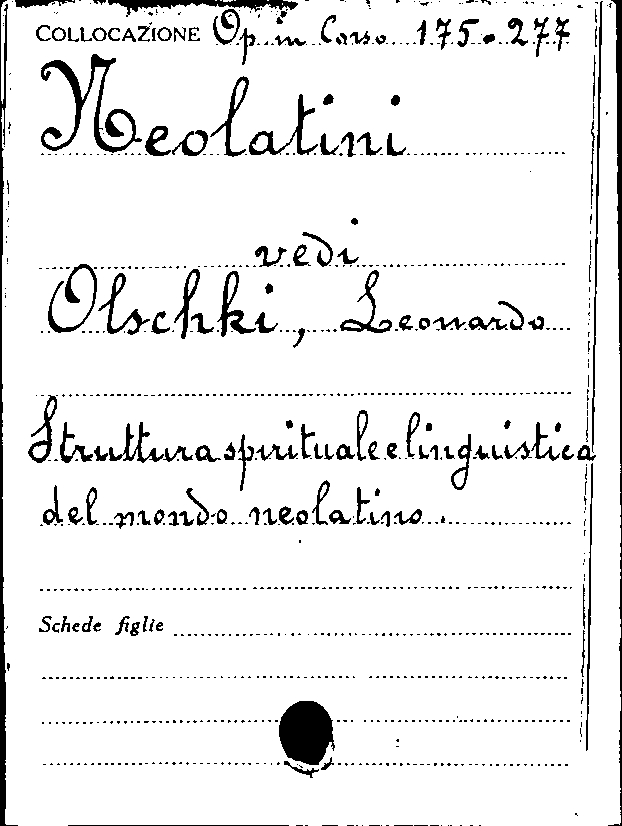 COLLOCAZIONE Op. in Corso 175.277
Neolatini
vedi
Olschki, Leonardo
Struttura spirituale e linguistica
del mondo neolatino.
Schede figlie